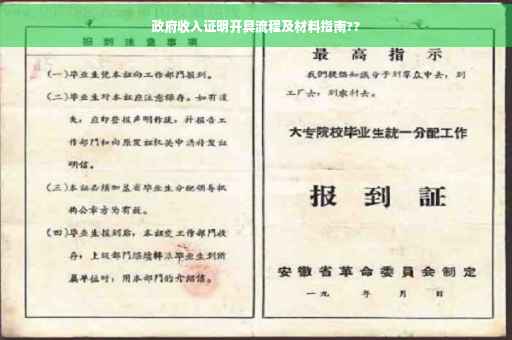 政府收入证明开具流程及材料指南??
报到注意事项
(一)毕业生凭本证向工作部门报到。
(二)毕业生对本证应注意保存。如有遗
失,应即登报声明作废,并报告工
作部门和向原发证机关申请补发证
明信。
(三)本证必须加盖省毕业生分配领导机
构公章方为有效。
(四)毕业生报到后,本证交工作部门收
存;上级部门继续转派毕业生到所
属单位时,用本部门的介绍信。
最高指示
我们提倡知识分子到群众中去,到
工厂去,到农村去。
大专院校毕业生统一分配工作
报到证
安徽省革命委员会制定
一九 年 月 日